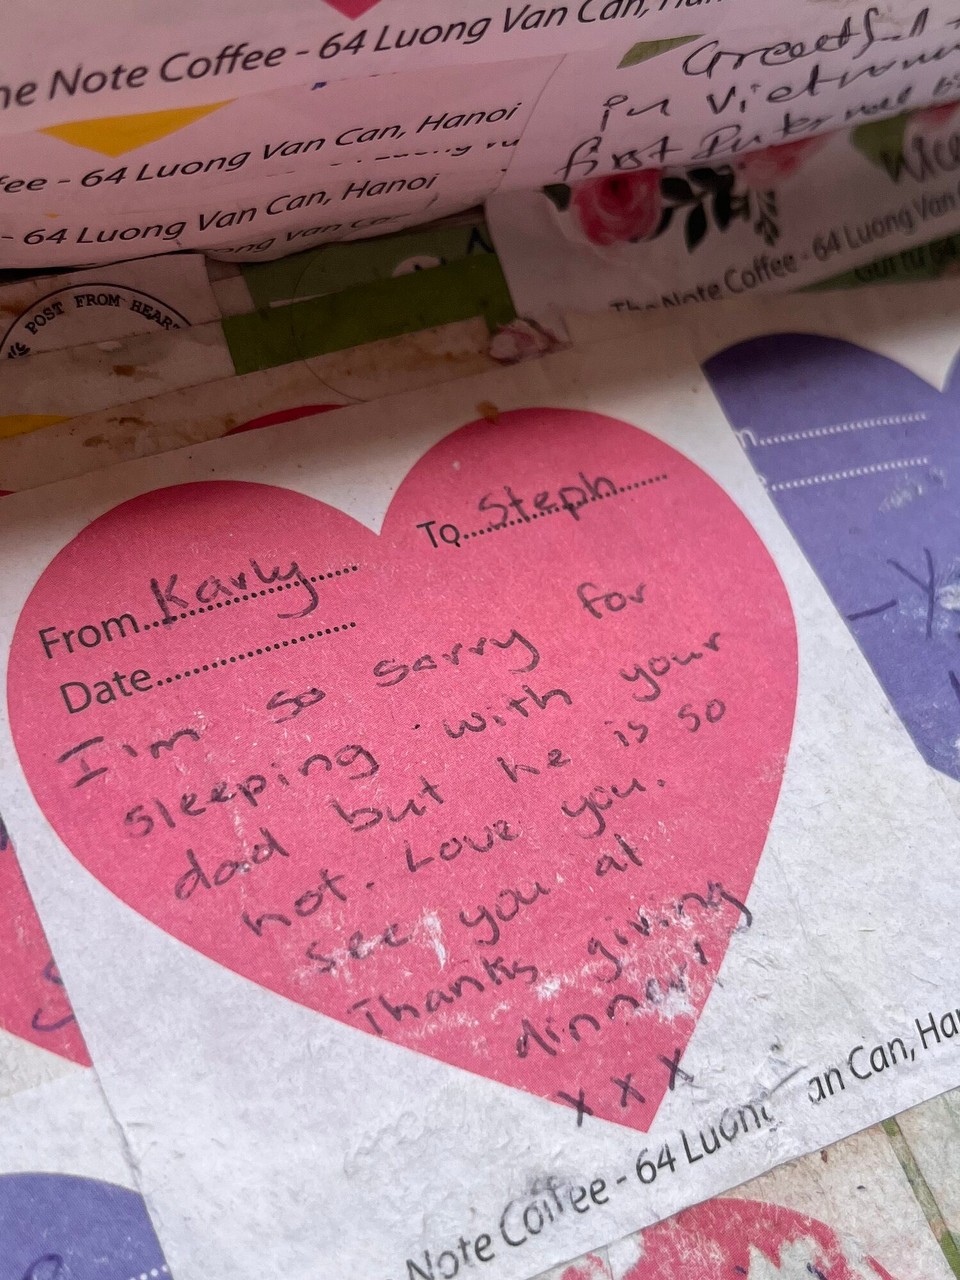 he Note Coffee - 64 Luong Van Can,
fee - 64 Luong Van Can, Hanoi
- 64 Luong Van Can, Hanoi
ong Van Can
in Vietnam
first
Nice
The Note Coffee - 64 Luong Van
POST FROM HEART
From Karly
To Steph
Date
I'm so sorry for
sleeping with your
dad but he is so
hot. Love you.
see you at
Thanks giving
dinner!
x x x
Note Coffee - 64 Luong an Can, Han